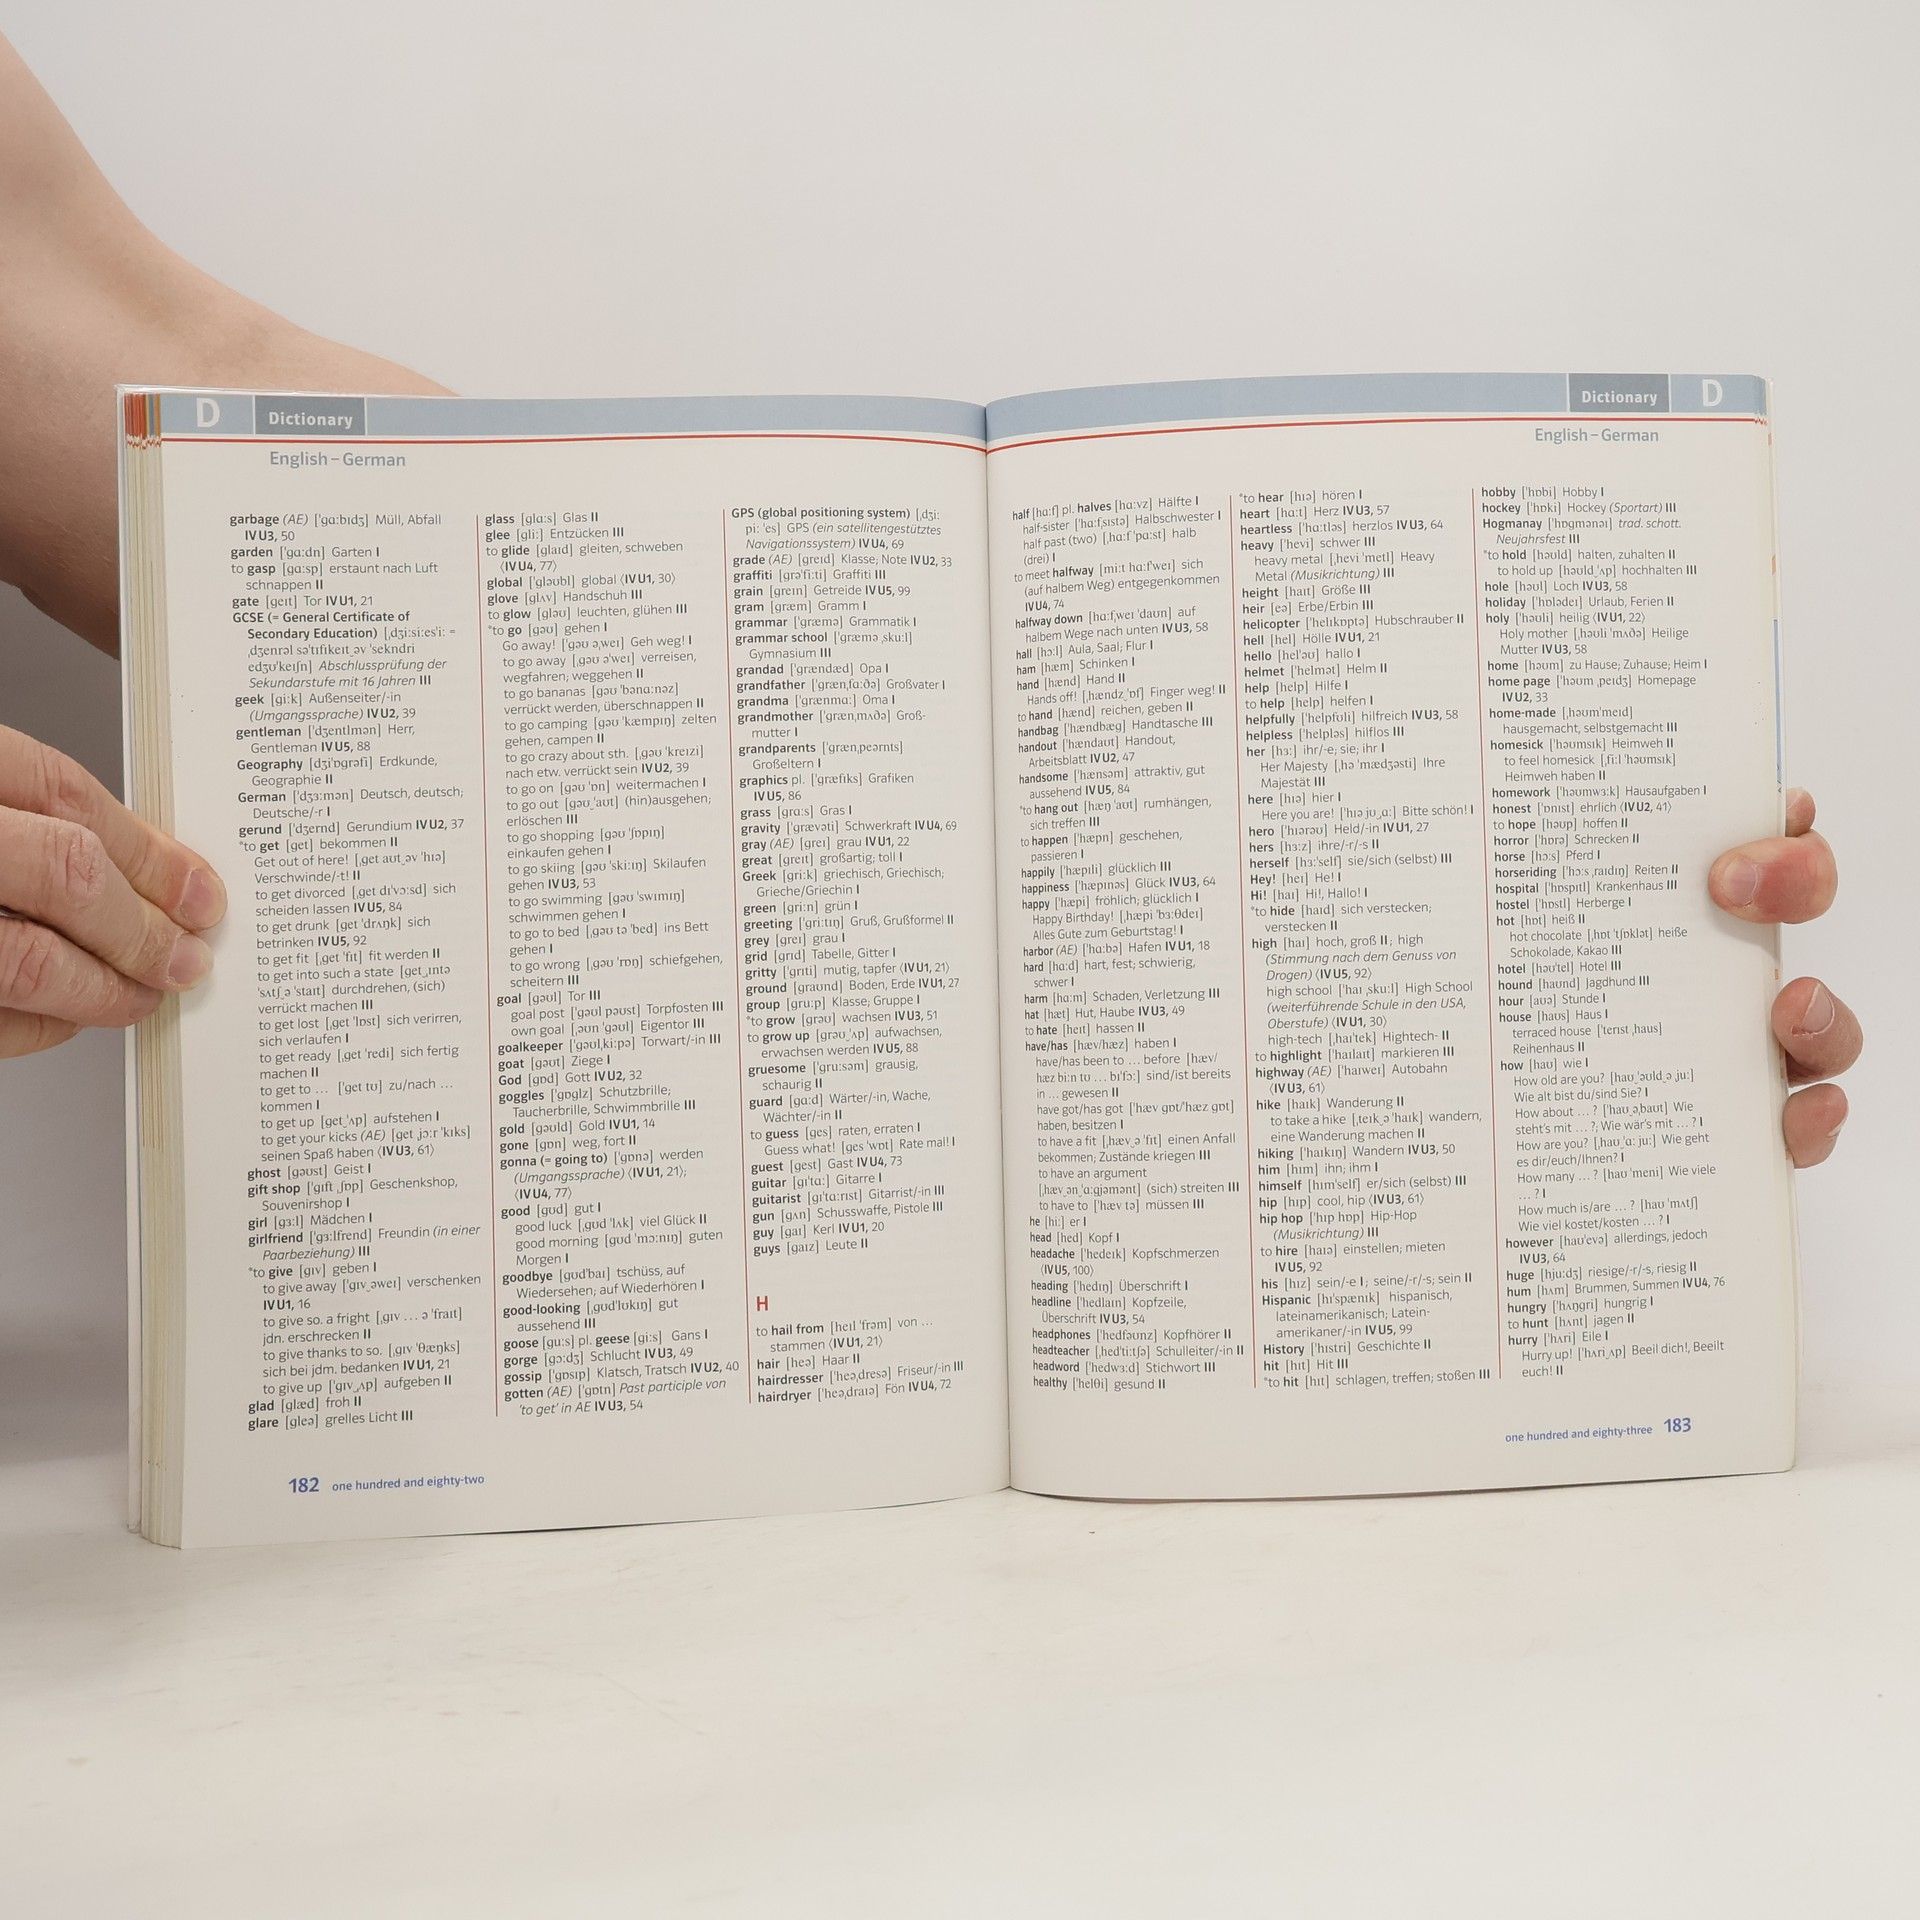 D Dictionary
English – German
garbage (AE) ['gɑːbɪdʒ] Müll, Abfall
IV U3, 50
garden ['gɑːdn] Garten I
to gasp [gɑːsp] erstaunt nach Luft
schnappen II
gate [geɪt] Tor IV U1, 21
GCSE (= General Certificate of
Secondary Education) [ˌdʒiːsiːesˈiː =
ˌdʒenrəl səˈtɪfɪkeɪt‿əv ˈsekndri
edʒʊˈkeɪʃn] Abschlussprüfung der
Sekundarstufe mit 16 Jahren III
geek [giːk] Außenseiter/-in
(Umgangssprache) IV U2, 39
gentleman ['dʒentlmən] Herr,
Gentleman IV U5, 88
Geography [dʒiˈɒgrəfi] Erdkunde,
Geographie II
German ['dʒɜːmən] Deutsch, deutsch;
Deutsche/-r I
gerund ['dʒernd] Gerundium IV U2, 37
*to get [get] bekommen II
Get out of here! [ˌget aʊt‿əv ˈhɪə]
Verschwinde/-t! II
to get divorced [ˌget dɪˈvɔːsd] sich
scheiden lassen IV U5, 84
to get drunk [get ˈdrʌŋk] sich
betrinken IV U5, 92
to get fit [ˌget ˈfɪt] fit werden II
to get into such a state [get‿ˌɪntə
ˈsʌtʃ‿ə ˈstaɪt] durchdrehen, (sich)
verrückt machen III
to get lost [ˌget ˈlɒst] sich verirren,
sich verlaufen I
to get ready [ˌget ˈredi] sich fertig
machen II
to get to … ['get tʊ] zu/nach …
kommen I
to get up [get‿ˈʌp] aufstehen I
to get your kicks (AE) [get ˌjɔːr ˈkɪks]
seinen Spaß haben ⟨IV U3, 61⟩
ghost [gəʊst] Geist I
gift shop ['gɪft ˌʃɒp] Geschenkshop,
Souvenirshop I
girl [gɜːl] Mädchen I
girlfriend ['gɜːlfrend] Freundin (in einer
Paarbeziehung) III
*to give [gɪv] geben I
to give away ['gɪv‿əweɪ] verschenken
IV U1, 16
to give so. a fright [ˌgɪv … ə ˈfraɪt]
jdn. erschrecken II
to give thanks to so. [ˌgɪv ˈθæŋks]
sich bei jdm. bedanken IV U1, 21
to give up ['gɪv‿ˌʌp] aufgeben II
glad [glæd] froh II
glare [gleə] grelles Licht III
glass [glɑːs] Glas II
glee [gliː] Entzücken III
to glide [glaɪd] gleiten, schweben
⟨IV U4, 77⟩
global ['gləʊbl] global ⟨IV U1, 30⟩
glove [glʌv] Handschuh III
to glow [gləʊ] leuchten, glühen III
*to go [gəʊ] gehen I
Go away! ['gəʊ əˌweɪ] Geh weg! I
to go away [ˌgəʊ əˈweɪ] verreisen,
wegfahren; weggehen II
to go bananas [gəʊ ˈbənɑːnəz]
verrückt werden, überschnappen II
to go camping [gəʊ ˈkæmpɪŋ] zelten
gehen, campen II
to go crazy about sth. [ˌgəʊ ˈkreɪzi]
nach etw. verrückt sein IV U2, 39
to go on [gəʊ ˈɒn] weitermachen I
to go out [gəʊ‿ˈaʊt] (hin)ausgehen;
erlöschen III
to go shopping [gəʊ ˈʃɒpɪŋ]
einkaufen gehen I
to go skiing [gəʊ ˈskiːɪŋ] Skilaufen
gehen IV U3, 53
to go swimming [gəʊ ˈswɪmɪŋ]
schwimmen gehen I
to go to bed [ˌgəʊ tə ˈbed] ins Bett
gehen I
to go wrong [ˌgəʊ ˈrɒŋ] schiefgehen,
scheitern III
goal [gəʊl] Tor III
goal post ['gəʊl pəʊst] Torpfosten III
own goal [ˌəʊn ˈgəʊl] Eigentor III
goalkeeper ['gəʊlˌkiːpə] Torwart/-in III
goat [gəʊt] Ziege I
God [gɒd] Gott IV U2, 32
goggles ['gɒglz] Schutzbrille;
Taucherbrille, Schwimmbrille III
gold [gəʊld] Gold IV U1, 14
gone [gɒn] weg, fort II
gonna (= going to) ['gɒnə] werden
(Umgangssprache) ⟨IV U1, 21⟩;
⟨IV U4, 77⟩
good [gʊd] gut I
good luck [ˌgʊd ˈlʌk] viel Glück II
good morning [gʊd ˈmɔːnɪŋ] guten
Morgen I
goodbye [gʊdˈbaɪ] tschüss, auf
Wiedersehen; auf Wiederhören I
good-looking [ˌgʊdˈlʊkɪŋ] gut
aussehend III
goose [guːs] pl. geese [giːs] Gans I
gorge [gɔːdʒ] Schlucht IV U3, 49
gossip ['gɒsɪp] Klatsch, Tratsch IV U2, 40
gotten (AE) ['gɒtn] Past participle von
'to get' in AE IV U3, 54
GPS (global positioning system) [ˌdʒiː
piː ˈes] GPS (ein satellitengestütztes
Navigationssystem) IV U4, 69
grade (AE) [greɪd] Klasse; Note IV U2, 33
graffiti [grəˈfiːti] Graffiti III
grain [greɪn] Getreide IV U5, 99
gram [græm] Gramm I
grammar ['græmə] Grammatik I
grammar school ['græmə ˌskuːl]
Gymnasium III
grandad ['grændæd] Opa I
grandfather ['grænˌfɑːðə] Großvater I
grandma ['grænmɑː] Oma I
grandmother ['grænˌmʌðə] Groß-
mutter I
grandparents ['grænˌpeərnts]
Großeltern I
graphics pl. ['græfɪks] Grafiken
IV U5, 86
grass [grɑːs] Gras I
gravity ['grævəti] Schwerkraft IV U4, 69
gray (AE) [greɪ] grau IV U1, 22
great [greɪt] großartig; toll I
Greek [griːk] griechisch, Griechisch;
Grieche/Griechin I
green [griːn] grün I
greeting ['griːtɪŋ] Gruß, Grußformel II
grey [greɪ] grau I
grid [grɪd] Tabelle, Gitter I
gritty ['grɪti] mutig, tapfer ⟨IV U1, 21⟩
ground [graʊnd] Boden, Erde IV U1, 27
group [gruːp] Klasse; Gruppe I
*to grow [grəʊ] wachsen IV U3, 51
to grow up [grəʊ‿ˈʌp] aufwachsen,
erwachsen werden IV U5, 88
gruesome ['gruːsəm] grausig,
schaurig II
guard [gɑːd] Wärter/-in, Wache,
Wächter/-in II
to guess [ges] raten, erraten I
Guess what! [ges ˈwɒt] Rate mal! I
guest [gest] Gast IV U4, 73
guitar [gɪˈtɑː] Gitarre I
guitarist [gɪˈtɑːrɪst] Gitarrist/-in III
gun [gʌn] Schusswaffe, Pistole III
guy [gaɪ] Kerl IV U1, 20
guys [gaɪz] Leute II
H
to hail from [heɪl ˈfrəm] von …
stammen ⟨IV U1, 21⟩
hair [heə] Haar II
hairdresser ['heəˌdresə] Friseur/-in III
hairdryer ['heəˌdraɪə] Fön IV U4, 72
182 one hundred and eighty-two
Dictionary D
English – German
half [hɑːf] pl. halves [hɑːvz] Hälfte I
half-sister ['hɑːfˌsɪstə] Halbschwester I
half past (two) [ˌhɑːf ˈpɑːst] halb
(drei) I
to meet halfway [miːt hɑːfˈweɪ] sich
(auf halbem Weg) entgegenkommen
IV U4, 74
halfway down [hɑːfˌweɪ ˈdaʊn] auf
halbem Wege nach unten IV U3, 58
hall [hɔːl] Aula, Saal; Flur I
ham [hæm] Schinken I
hand [hænd] Hand II
Hands off! [ˌhændz‿ˈɒf] Finger weg! II
to hand [hænd] reichen, geben II
handbag ['hændbæg] Handtasche III
handout ['hændaʊt] Handout,
Arbeitsblatt IV U2, 47
handsome ['hænsəm] attraktiv, gut
aussehend IV U5, 84
*to hang out [hæŋ ˈaʊt] rumhängen,
sich treffen III
to happen ['hæpn] geschehen,
passieren I
happily ['hæpɪli] glücklich III
happiness ['hæpɪnəs] Glück IV U3, 64
happy ['hæpi] fröhlich; glücklich I
Happy Birthday! [ˌhæpi ˈbɜːθdeɪ]
Alles Gute zum Geburtstag! I
harbor (AE) ['hɑːbə] Hafen IV U1, 18
hard [hɑːd] hart, fest; schwierig,
schwer I
harm [hɑːm] Schaden, Verletzung III
hat [hæt] Hut, Haube IV U3, 49
to hate [heɪt] hassen II
have/has [hæv/hæz] haben I
have/has been to … before [hæv/
hæz biːn tʊ … bɪˈfɔː] sind/ist bereits
in … gewesen II
have got/has got ['hæv gɒt/'hæz gɒt]
haben, besitzen I
to have a fit [ˌhæv‿ə ˈfɪt] einen Anfall
bekommen; Zustände kriegen III
to have an argument
[ˌhæv‿ən‿ˈɑːgjəmənt] (sich) streiten III
to have to ['hæv tə] müssen III
he [hiː] er I
head [hed] Kopf I
headache ['hedeɪk] Kopfschmerzen
⟨IV U5, 100⟩
heading ['hedɪŋ] Überschrift I
headline ['hedlaɪn] Kopfzeile,
Überschrift IV U3, 54
headphones ['hedfəʊnz] Kopfhörer II
headteacher [ˌhedˈtiːtʃə] Schulleiter/-in II
headword ['hedwɜːd] Stichwort III
healthy ['helθi] gesund II
*to hear [hɪə] hören I
heart [hɑːt] Herz IV U3, 57
heartless ['hɑːtləs] herzlos IV U3, 64
heavy ['hevi] schwer III
heavy metal [ˌhevi ˈmetl] Heavy
Metal (Musikrichtung) III
height [haɪt] Größe III
heir [eə] Erbe/Erbin III
helicopter ['helɪkɒptə] Hubschrauber II
hell [hel] Hölle IV U1, 21
hello [helˈəʊ] hallo I
helmet ['helmət] Helm II
help [help] Hilfe I
to help [help] helfen I
helpfully ['helpfʊli] hilfreich IV U3, 58
helpless ['helpləs] hilflos III
her [hɜː] ihr/-e; sie; ihr I
Her Majesty [ˌhə ˈmædʒəsti] Ihre
Majestät III
here [hɪə] hier I
Here you are! ['hɪə ju‿ˌɑː] Bitte schön! I
hero ['hɪərəʊ] Held/-in IV U1, 27
hers [hɜːz] ihre/-r/-s II
herself [hɜːˈself] sie/sich (selbst) III
Hey! [heɪ] He! I
Hi! [haɪ] Hi!, Hallo! I
*to hide [haɪd] sich verstecken;
verstecken II
high [haɪ] hoch, groß II; high
(Stimmung nach dem Genuss von
Drogen) ⟨IV U5, 92⟩
high school ['haɪ ˌskuːl] High School
(weiterführende Schule in den USA,
Oberstufe) ⟨IV U1, 30⟩
high-tech [ˌhaɪˈtek] Hightech- II
to highlight ['haɪlaɪt] markieren III
highway (AE) ['haɪweɪ] Autobahn
⟨IV U3, 61⟩
hike [haɪk] Wanderung II
to take a hike [ˌteɪk‿ə ˈhaɪk] wandern,
eine Wanderung machen II
hiking ['haɪkɪŋ] Wandern IV U3, 50
him [hɪm] ihn; ihm I
himself [hɪmˈself] er/sich (selbst) III
hip [hɪp] cool, hip ⟨IV U3, 61⟩
hip hop ['hɪp hɒp] Hip-Hop
(Musikrichtung) III
to hire [haɪə] einstellen; mieten
IV U5, 92
his [hɪz] sein/-e I; seine/-r/-s; sein II
Hispanic [hɪˈspænɪk] hispanisch,
lateinamerikanisch; Latein-
amerikaner/-in IV U5, 99
History ['hɪstri] Geschichte II
hit [hɪt] Hit III
*to hit [hɪt] schlagen, treffen; stoßen III
hobby ['hɒbi] Hobby I
hockey ['hɒki] Hockey (Sportart) III
Hogmanay ['hɒgmənəɪ] trad. schott.
Neujahrsfest III
*to hold [həʊld] halten, zuhalten II
to hold up [həʊld‿ˈʌp] hochhalten III
hole [həʊl] Loch IV U3, 58
holiday ['hɒlədeɪ] Urlaub, Ferien II
holy ['həʊli] heilig ⟨IV U1, 22⟩
Holy mother [ˌhəʊli ˈmʌðə] Heilige
Mutter IV U3, 58
home [həʊm] zu Hause; Zuhause; Heim I
home page ['həʊm ˌpeɪdʒ] Homepage
IV U2, 33
home-made [ˌhəʊmˈmeɪd]
hausgemacht, selbstgemacht III
homesick ['həʊmsɪk] Heimweh II
to feel homesick [ˌfiːl ˈhəʊmsɪk]
Heimweh haben II
homework ['həʊmwɜːk] Hausaufgaben I
honest ['ɒnɪst] ehrlich ⟨IV U2, 41⟩
to hope [həʊp] hoffen II
horror ['hɒrə] Schrecken II
horse [hɔːs] Pferd I
horseriding ['hɔːsˌraɪdɪŋ] Reiten II
hospital ['hɒspɪtl] Krankenhaus III
hostel ['hɒstl] Herberge I
hot [hɒt] heiß II
hot chocolate [ˌhɒt ˈtʃɒklət] heiße
Schokolade, Kakao III
hotel [həʊˈtel] Hotel III
hound [haʊnd] Jagdhund III
hour [aʊə] Stunde I
house [haʊs] Haus I
terraced house ['terɪst ˌhaʊs]
Reihenhaus II
how [haʊ] wie I
How old are you? [haʊ‿ˈəʊld‿ə ˌjuː]
Wie alt bist du/sind Sie? I
How about … ? ['haʊ‿əˌbaʊt] Wie
steht's mit … ?; Wie wär's mit … ? I
How are you? [ˌhaʊ‿ˈɑː juː] Wie geht
es dir/euch/Ihnen? I
How many … ? [haʊ ˈmeni] Wie viele
… ? I
How much is/are … ? [haʊ ˈmʌtʃ]
Wie viel kostet/kosten … ? I
however [haʊˈevə] allerdings, jedoch
IV U3, 64
huge [hjuːdʒ] riesige/-r/-s, riesig II
hum [hʌm] Brummen, Summen IV U4, 76
hungry ['hʌŋgri] hungrig I
to hunt [hʌnt] jagen II
hurry ['hʌri] Eile I
Hurry up! ['hʌri‿ˌʌp] Beeil dich!, Beeilt
euch! II
one hundred and eighty-three 183